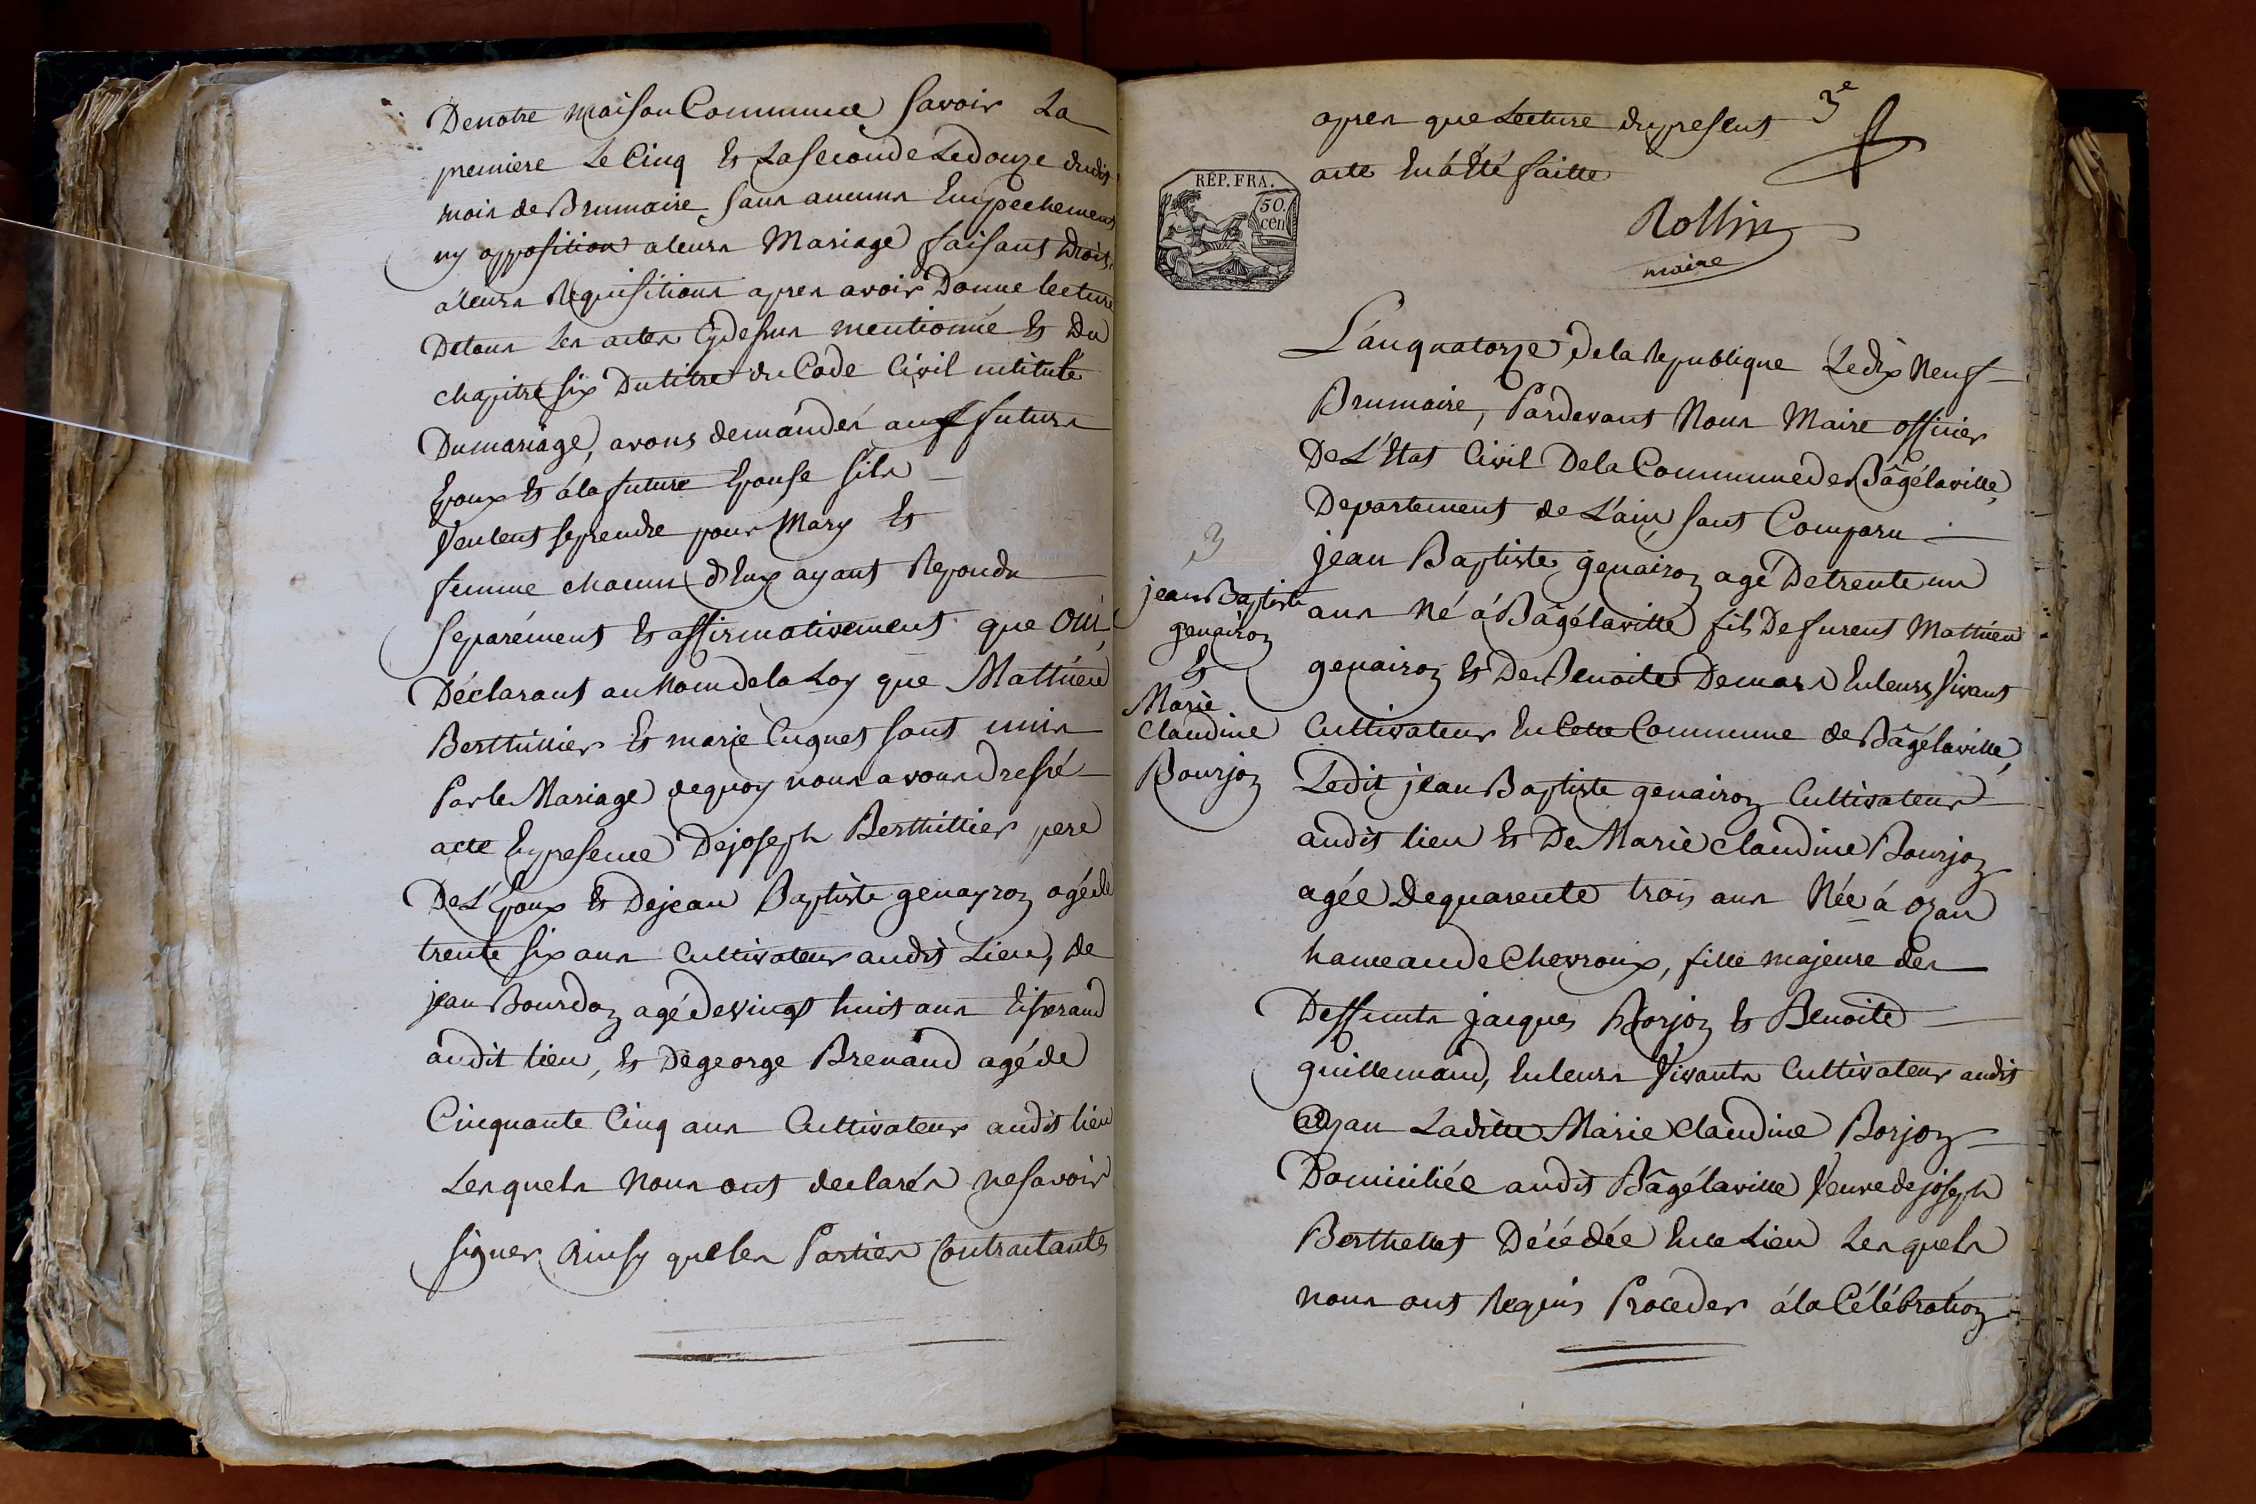 De notre maison Commune savoir La
premiere Le Cinq Et La seconde Le douze dudit
mois de Brumaire sans aucuns Empechement
ny opposition a leurs Mariage faisant Droit
a leurs Requisitions apres avoir Donne lecture
De tous Les actes Cy dessus mentionné Et Du
chapitre six Du titre du Code Civil intitulé
Du mariage, avons demandés au futurs
Epoux Et á la future Epouse s'ils
Veulent se prendre pour Mary Et
femme chacun d'Eux ayant Repondu
separément Et affirmativement que OUI,
Déclarant au Nom de la Loy que Matthieu
Berthillier Et marie Cuguet sont unis
Par le Mariage de quoy nous avons Dressé
acte En presence De joseph Berthillier pere
De L'Epoux Et De jean Baptiste genayron agé de
trente six ans Cultivateur audit Lieu, de
jean Bourdon agé de vingt huit ans tisserand
audit lieu, Et De george Brenaud agé de
Cinquante Cinq ans Cultivateur audit lieu
Lesquels Nous ont declarés ne savoir
signer Ainsy que les Parties Contractantes
3e
apres que Lecture du present
acte En á Eté faitte
REP. FRA.
50. cen
Rollin
maire
L'an quatorze de la Republique Le dix Neuf
Brumaire, Pardevant Nous Maire officier
De L'Etat Civil De la Commune de Bâgélaville,
Departement de L'ain, sont Comparu
jean Baptiste genairon agé De trente un
ans Né á Bâgélaville fils De furent Mathieu
genairon Et De Benoite Demars En leurs Vivant
Cultivateur En Cette Commune de Bâgélaville,
Ledit jean Baptiste genairon Cultivateur
audit lieu Et De Marie Claudine Bourjon
agée De quarente trois ans Née á Ozan
hameau de Chevroux, fille majeure des
Deffunts jacques Borjon Et Benoite
guillemaud, En leurs Vivants Cultivateur audit
Ozan Laditte Marie Claudine Borjon
Domiciliée audit Bâgélaville Veuve de joseph
Berthellet Décédée En ce Lieu Lesquels
nous ont Requis Proceder á la Célébration
3
jean Baptiste
genairon
Et
Marie
Claudine
Bourjon